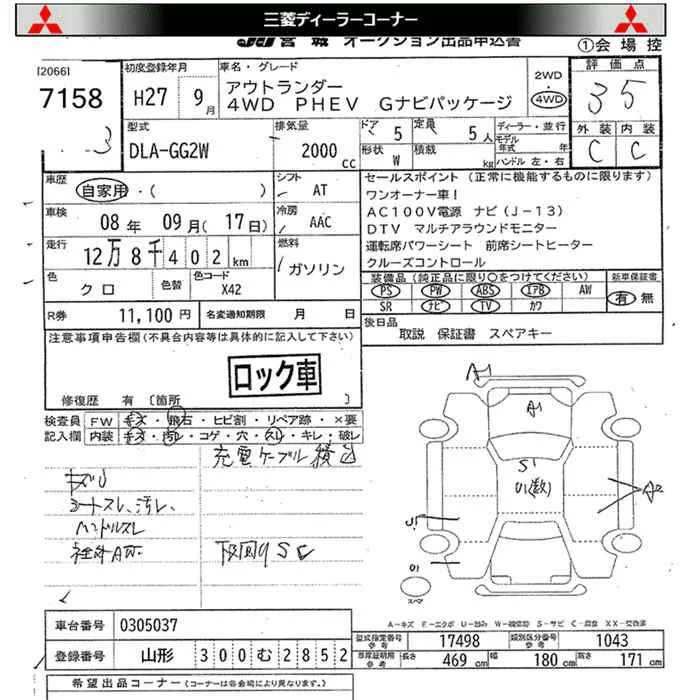 三菱ディーラーコーナー
宮城 オークション出品申込書
①会場控
[2066]
7158
3
初度登録年月
H27 9月
車名・グレード
アウトランダー
4WD PHEV Gナビパッケージ
2WD
・
4WD
評価点
3 5
外装 内装
C C
型式
DLA-GG2W
排気量
2000 cc
ドア 5
定員 5人
形状 W
積載 kg
ディーラー・並行
モデル年式 年
ハンドル 左・右
車歴
自家用・( )
シフト
AT
車検
08年 09月(17日)
冷房
AAC
走行
12万8千402km
燃料
ガソリン
色
クロ
色替
色コード
X42
セールスポイント (正常に機能するものに限ります)
ワンオーナー車!
AC100V電源 ナビ(J-13)
DTV マルチアラウンドモニター
運転席パワーシート 前席シートヒーター
クルーズコントロール
装備品(純正品に限り○をつけてください)
新車保証書
PS PW ABS エアB AW
SR ナビ TV カワ
有・無
R券 11,100円
名変通知期限 月 日
後日品
取説 保証書 スペアキー
注意事項申告欄(不具合内容等は具体的に記入して下さい)
ロック車
修復歴 有〔箇所 〕
検査員
記入欄
FW キズ・飛石・ヒビ割・リペア跡・×要
内装 キズ・汚れ・コゲ・穴・スレ・キレ・破レ
充電ケーブル積込
キズU
シートスレ、汚レ、
ハンドルスレ
下回りSC
A1
A1
S1
U1(数)
A2
U1
スペア
A-キズ E-エクボ U-凹み W-補修跡 S-サビ C-腐食 XX-交換済
車台番号 0305037
登録番号 山形 300む2852
型式指定番号 参考 17498
類別区分番号 参考 1043
車庫証明用 参考 長さ 469cm 幅 180cm 高さ 171cm
希望出品コーナー(コーナーは各会場により異なります。)